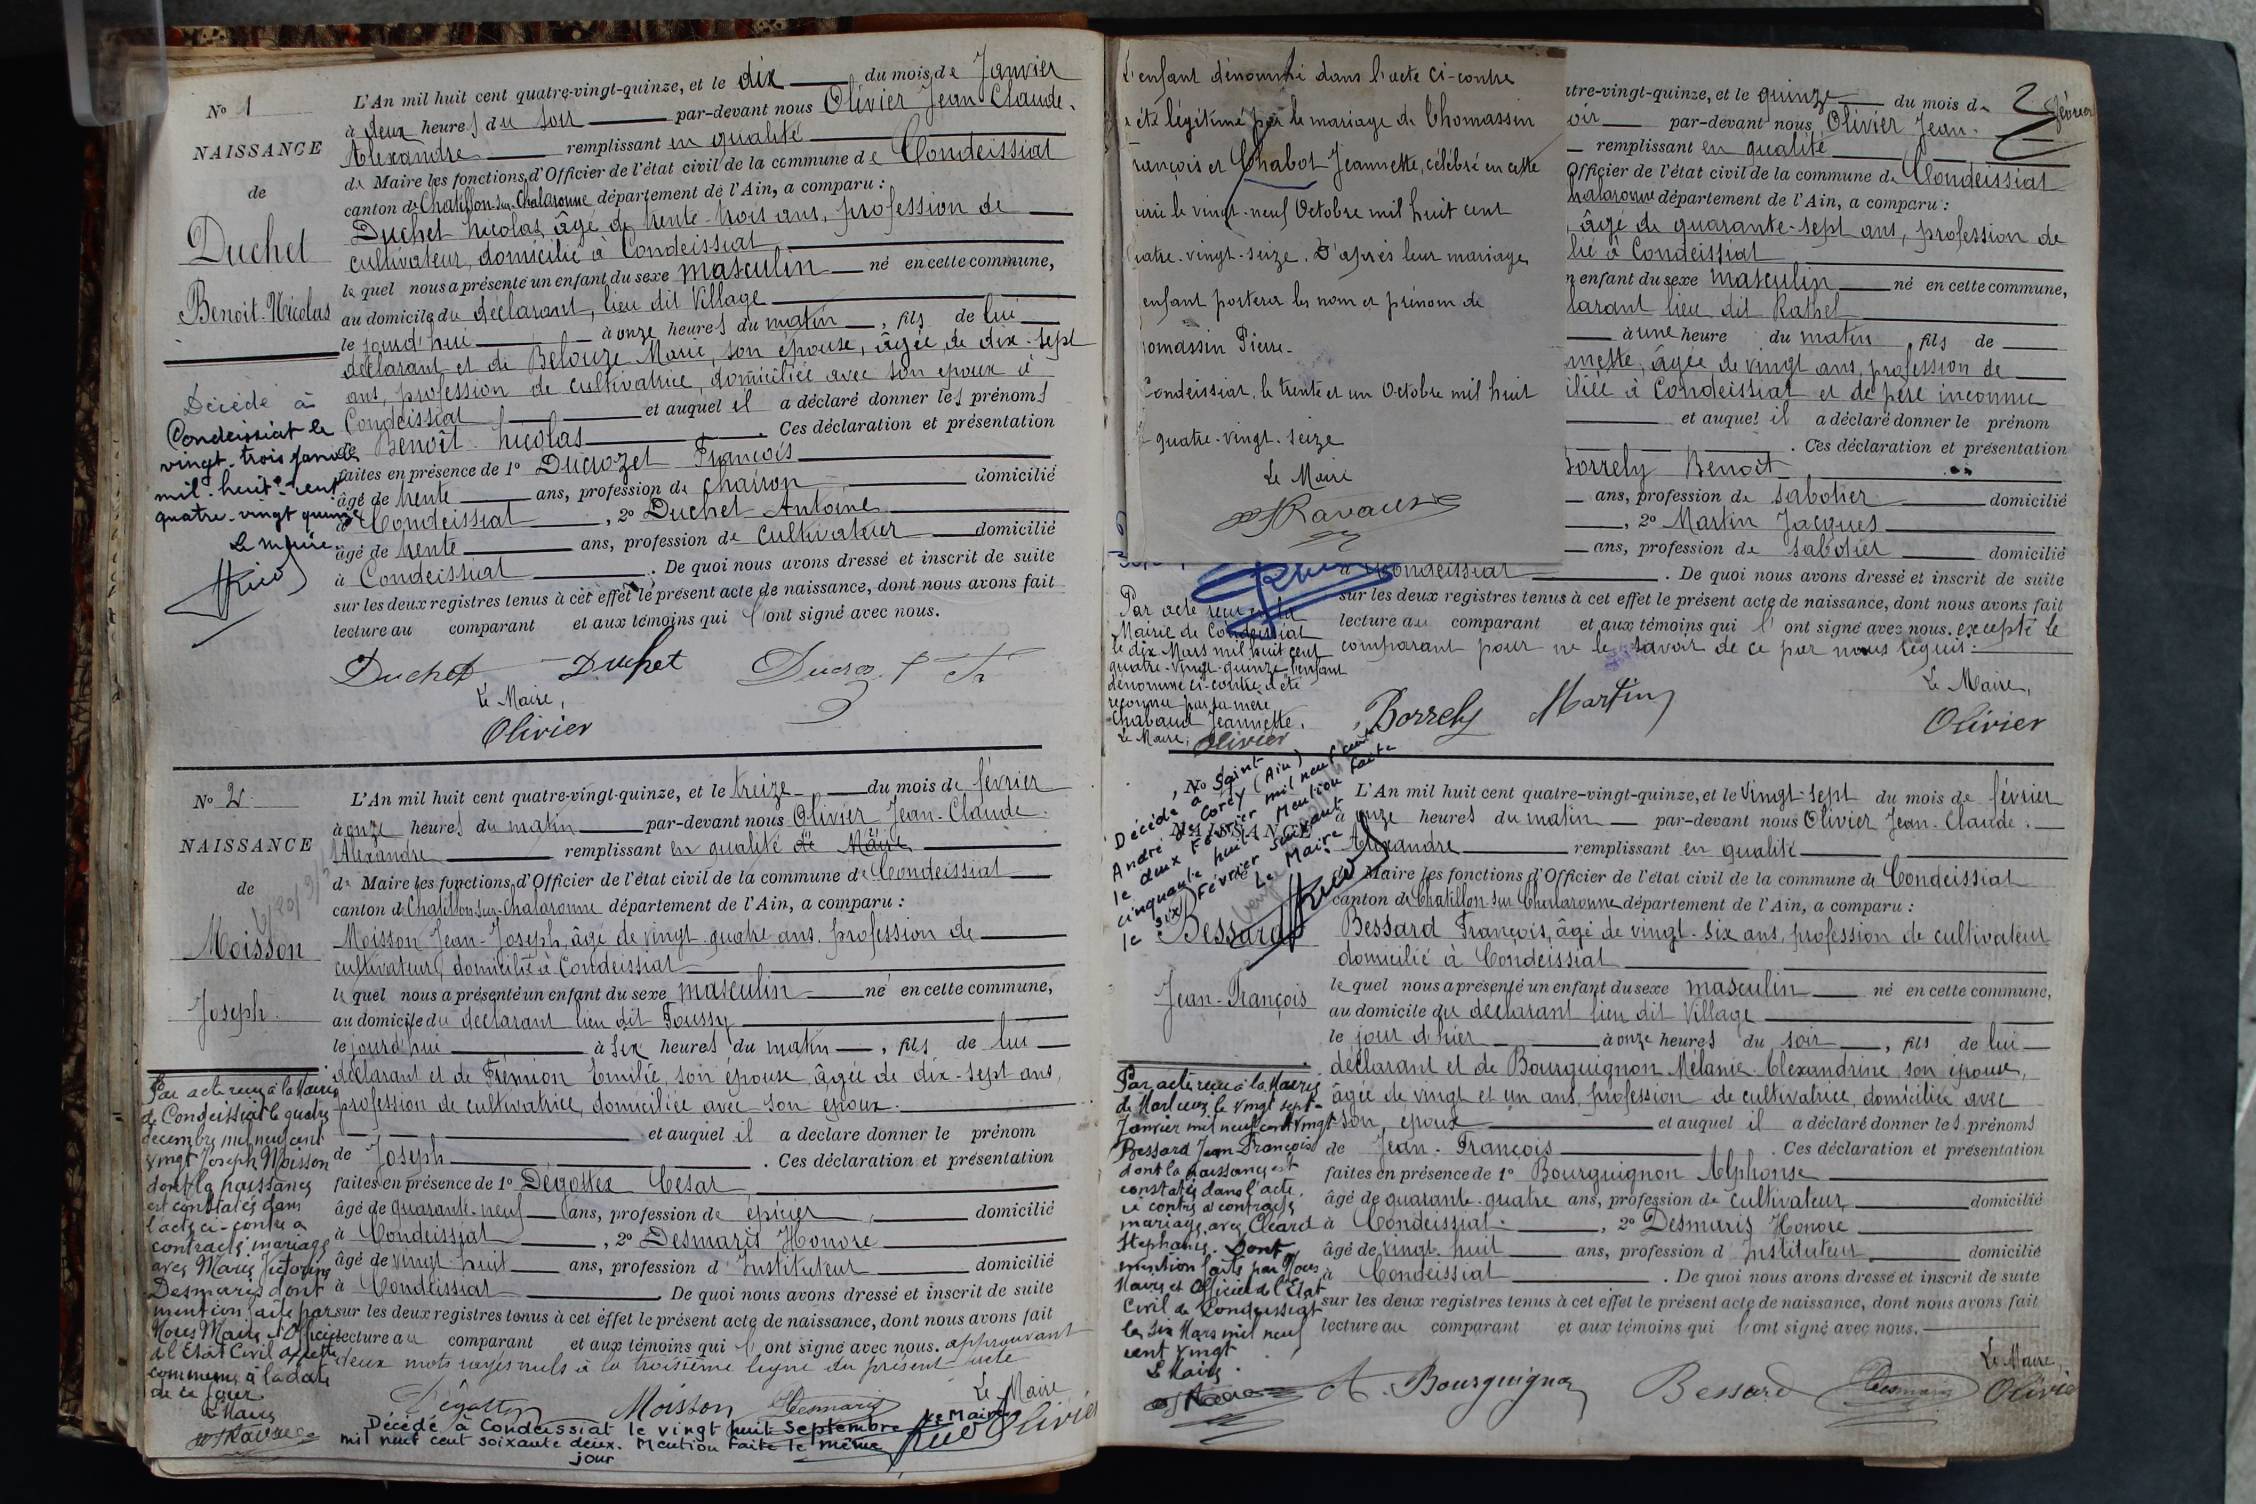 No 1
NAISSANCE
de
Duchet
Benoit-Nicolas
Décédé à
Condeissiat le
vingt-trois janvier
mil-huit-cent
quatre-vingt quinze
Le maire
L'An mil huit cent quatre-vingt-quinze, et le dix du mois de Janvier
à deux heures du soir par-devant nous Olivier Jean Claude-
Alexandre remplissant en qualité
de Maire les fonctions d'Officier de l'état civil de la commune de Condeissiat
canton de Chatillon-sur-Chalaronne département de l'Ain, a comparu :
Duchet Nicolas, âgé de trente-trois ans, profession de
cultivateur, domicilié à Condeissiat
le quel nous a présenté un enfant du sexe masculin né en cette commune,
au domicile du déclarant, lieu dit Village
le jourd'hui à onze heures du matin, fils de lui
déclarant et de Belouze Marie, son épouse, âgée de dix-sept
ans, profession de cultivatrice, domiciliée avec son époux à
Condeissiat et auquel il a déclaré donner les prénoms
de Benoît-Nicolas. Ces déclaration et présentation
faites en présence de 1o Ducrozet François
âgé de trente ans, profession de charron domicilié
à Condeissiat, 2o Duchet Antoine
âgé de trente ans, profession de cultivateur domicilié
à Condeissiat. De quoi nous avons dressé et inscrit de suite
sur les deux registres tenus à cet effet le présent acte de naissance, dont nous avons fait
lecture au comparant et aux témoins qui l'ont signé avec nous.
Duchet Duchet
Le Maire,
Olivier
No 2
NAISSANCE
de
Moisson
Joseph.
Par acte reçu à la Mairie
de Condeissiat le quatre
décembre mil neuf cent
vingt Joseph Moisson
dont la naissance
est constatée dans
l'acte ci-contre a
contracté mariage
avec Marie Victorine
Desmaris dont
mention faite par
Nous Maire et Officier
de l'Etat Civil de cette
commune à la date
de ce jour.
Le Maire
L'An mil huit cent quatre-vingt-quinze, et le treize du mois de février
à onze heures du matin par-devant nous Olivier Jean-Claude-
Alexandre remplissant en qualité de Maire
de Maire les fonctions d'Officier de l'état civil de la commune de Condeissiat
canton de Chatillon-sur-Chalaronne département de l'Ain, a comparu :
Moisson Jean-Joseph, âgé de vingt-quatre ans, profession de
cultivateur, domicilié à Condeissiat
le quel nous a présenté un enfant du sexe masculin né en cette commune,
au domicile du déclarant lieu dit Foussy
le jourd'hui à six heures du matin, fils de lui
déclarant et de Frémion Emilie, son épouse, âgée de dix-sept ans,
profession de cultivatrice, domiciliée avec son époux.
et auquel il a déclaré donner le prénom
de Joseph. Ces déclaration et présentation
faites en présence de 1o Dégottex César
âgé de quarante-neuf ans, profession de épicier, domicilié
à Condeissiat, 2o Desmaris Honoré
âgé de vingt-huit ans, profession d'Instituteur domicilié
à Condeissiat. De quoi nous avons dressé et inscrit de suite
sur les deux registres tenus à cet effet le présent acte de naissance, dont nous avons fait
lecture au comparant et aux témoins qui l'ont signé avec nous. approuvant
deux mots rayés nuls à la troisième ligne du présent acte
Dégottex Moisson Desmaris Le Maire
Olivier
Décédé à Condeissiat le vingt huit Septembre
mil neuf cent soixante deux. Mention faite le même
jour
Le Maire
L'enfant dénommé dans l'acte ci-contre
a été légitimé par le mariage de Thomassin
François et Chabot Jeannette, célébré en cette
mairie le vingt-neuf Octobre mil huit cent
quatre-vingt-seize. D'après leur mariage
enfant portera les nom et prénom de
Thomassin Pierre-
Condeissiat, le trente et un Octobre mil huit
quatre-vingt-seize
Le Maire
Ravaux
2
atre-vingt-quinze, et le quinze du mois de février
oir par-devant nous Olivier Jean-
remplissant en qualité
Officier de l'état civil de la commune de Condeissiat
halaronne département de l'Ain, a comparu :
, âgé de quarante-sept ans, profession de
lié à Condeissiat
n enfant du sexe masculin né en cette commune,
larant lieu dit Rathet
à une heure du matin, fils de
nette, âgée de vingt ans, profession de
iliée à Condeissiat et de père inconnu
et auquel il a déclaré donner le prénom
. Ces déclaration et présentation
Borrely Benoit
ans, profession de sabotier domicilié
, 2o Martin Jacques
ans, profession de sabotier domicilié
à Condeissiat. De quoi nous avons dressé et inscrit de suite
sur les deux registres tenus à cet effet le présent acte de naissance, dont nous avons fait
lecture au comparant et aux témoins qui l'ont signé avec nous. excepté le
comparant pour ne le savoir de ce par nous requis.
Borrely Martin
Le Maire,
Olivier
Par acte reçu à la
Mairie de Condeissiat
le dix Mars mil huit cent
quatre-vingt-quinze l'enfant
dénommé ci-contre a été
reconnu par sa mère
Chabaud Jeannette.
Le Maire,
Olivier
No
NAISSANCE
Décédé à Saint
André de Corcy (Ain)
le deux Février mil neuf cent
cinquante huit. Mention faite
le six Février suivant
Le Maire
Bessard
Jean-François
Par acte reçu à la Mairie
de Marlieux le vingt sept
Janvier mil neuf cent vingt
Bessard Jean François
dont la naissance est
constatée dans l'acte
ci contre a contracté
mariage avec Cléard
Stephanie. Dont
mention faite par Nous
Maire et Officier de l'Etat
Civil de Condeissiat
le six Mars mil neuf
cent vingt
Le Maire.
L'An mil huit cent quatre-vingt-quinze, et le Vingt-sept du mois de février
à onze heures du matin par-devant nous Olivier Jean-Claude-
Alexandre remplissant en qualité
de Maire les fonctions d'Officier de l'état civil de la commune de Condeissiat
canton de Chatillon-sur-Chalaronne département de l'Ain, a comparu :
Bessard François, âgé de vingt-six ans, profession de cultivateur
domicilié à Condeissiat
le quel nous a présenté un enfant du sexe masculin né en cette commune,
au domicile du déclarant lieu dit Village
le jour d'hier à onze heures du soir, fils de lui
déclarant et de Bourguignon Mélanie Alexandrine, son épouse,
âgée de vingt et un ans, profession de cultivatrice, domiciliée avec
son époux et auquel il a déclaré donner les prénoms
de Jean-François. Ces déclaration et présentation
faites en présence de 1o Bourguignon Alphonse
âgé de quarante-quatre ans, profession de cultivateur domicilié
à Condeissiat, 2o Desmaris Honoré
âgé de vingt-huit ans, profession d'Instituteur domicilié
à Condeissiat. De quoi nous avons dressé et inscrit de suite
sur les deux registres tenus à cet effet le présent acte de naissance, dont nous avons fait
lecture au comparant et aux témoins qui l'ont signé avec nous.
A. Bourguignon Bessard Desmaris
Le Maire,
Olivier